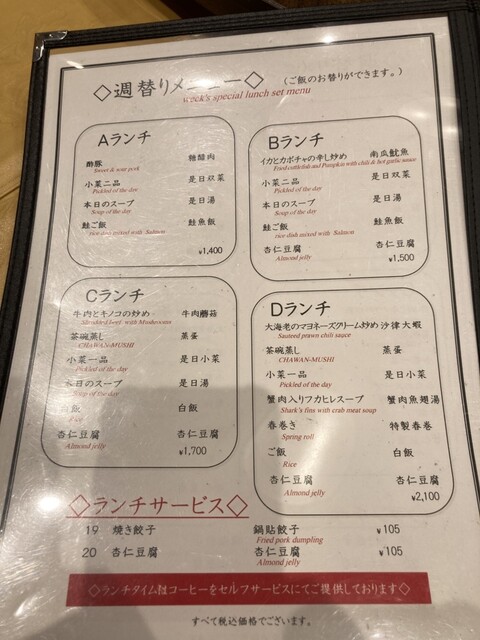 ◇週替りメニュー◇ (ご飯のお替りができます。)
week's special lunch set menu
Aランチ
酢豚 糖醋肉
Sweet & sour pork
小菜二品 是日双菜
Pickled of the day
本日のスープ 是日湯
Soup of the day
鮭ご飯 鮭魚飯
rice dish mixed with Salmon
¥1,400
Bランチ
イカとカボチャの辛し炒め 南瓜魷魚
Fried cuttlefish and Pumpkin with chili & hot garlic sauce
小菜二品 是日双菜
Pickled of the day
本日のスープ 是日湯
Soup of the day
鮭ご飯 鮭魚飯
rice dish mixed with Salmon
杏仁豆腐 杏仁豆腐
Almond jelly
¥1,500
Cランチ
牛肉とキノコの炒め 牛肉蘑菇
Shredded beef with Mushrooms
茶碗蒸し 蒸蛋
CHAWAN-MUSHI
小菜一品 是日小菜
Pickled of the day
本日のスープ 是日湯
Soup of the day
白飯 白飯
Rice
杏仁豆腐 杏仁豆腐
Almond jelly
¥1,700
Dランチ
大海老のマヨネーズクリーム炒め 沙律大蝦
Sauteed prawn chili sauce
茶碗蒸し 蒸蛋
CHAWAN-MUSHI
小菜一品 是日小菜
Pickled of the day
蟹肉入りフカヒレスープ 蟹肉魚翅湯
Shark's fins with crab meat soup
春巻き 特製春巻
Spring roll
ご飯 白飯
Rice
杏仁豆腐 杏仁豆腐
Almond jelly
¥2,100
◇ランチサービス◇
19 焼き餃子 鍋貼餃子 ¥105
Fried pork dumpling
20 杏仁豆腐 杏仁豆腐 ¥105
Almond jelly
◇ランチタイムはコーヒーをセルフサービスにてご提供しております◇
すべて税込価格でございます。